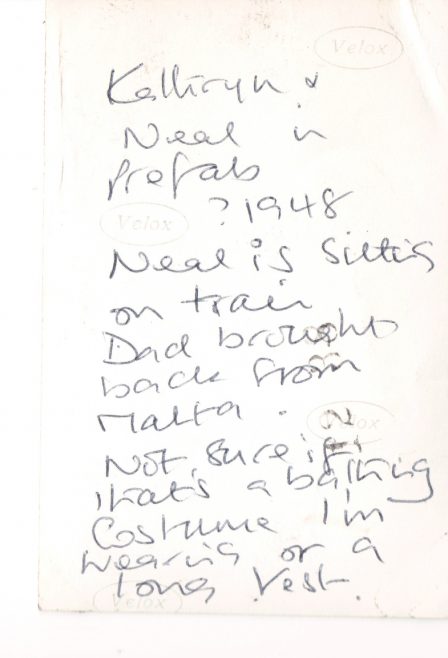 Velox
Kathryn &
Neal in
prefab
? 1948
Velox
Neal is sitting
on train
Dad brought
back from
Malta.
Velox
Not sure if
that's a bathing
Costume I'm
wearing or a
long vest.
Velox